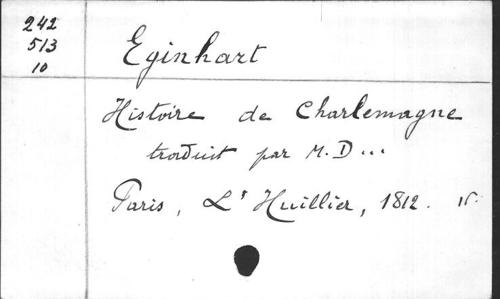 242
513
10
Eginhart
Histoire de Charlemagne
traduit par M. D...
Paris, L'Huillier, 1812.